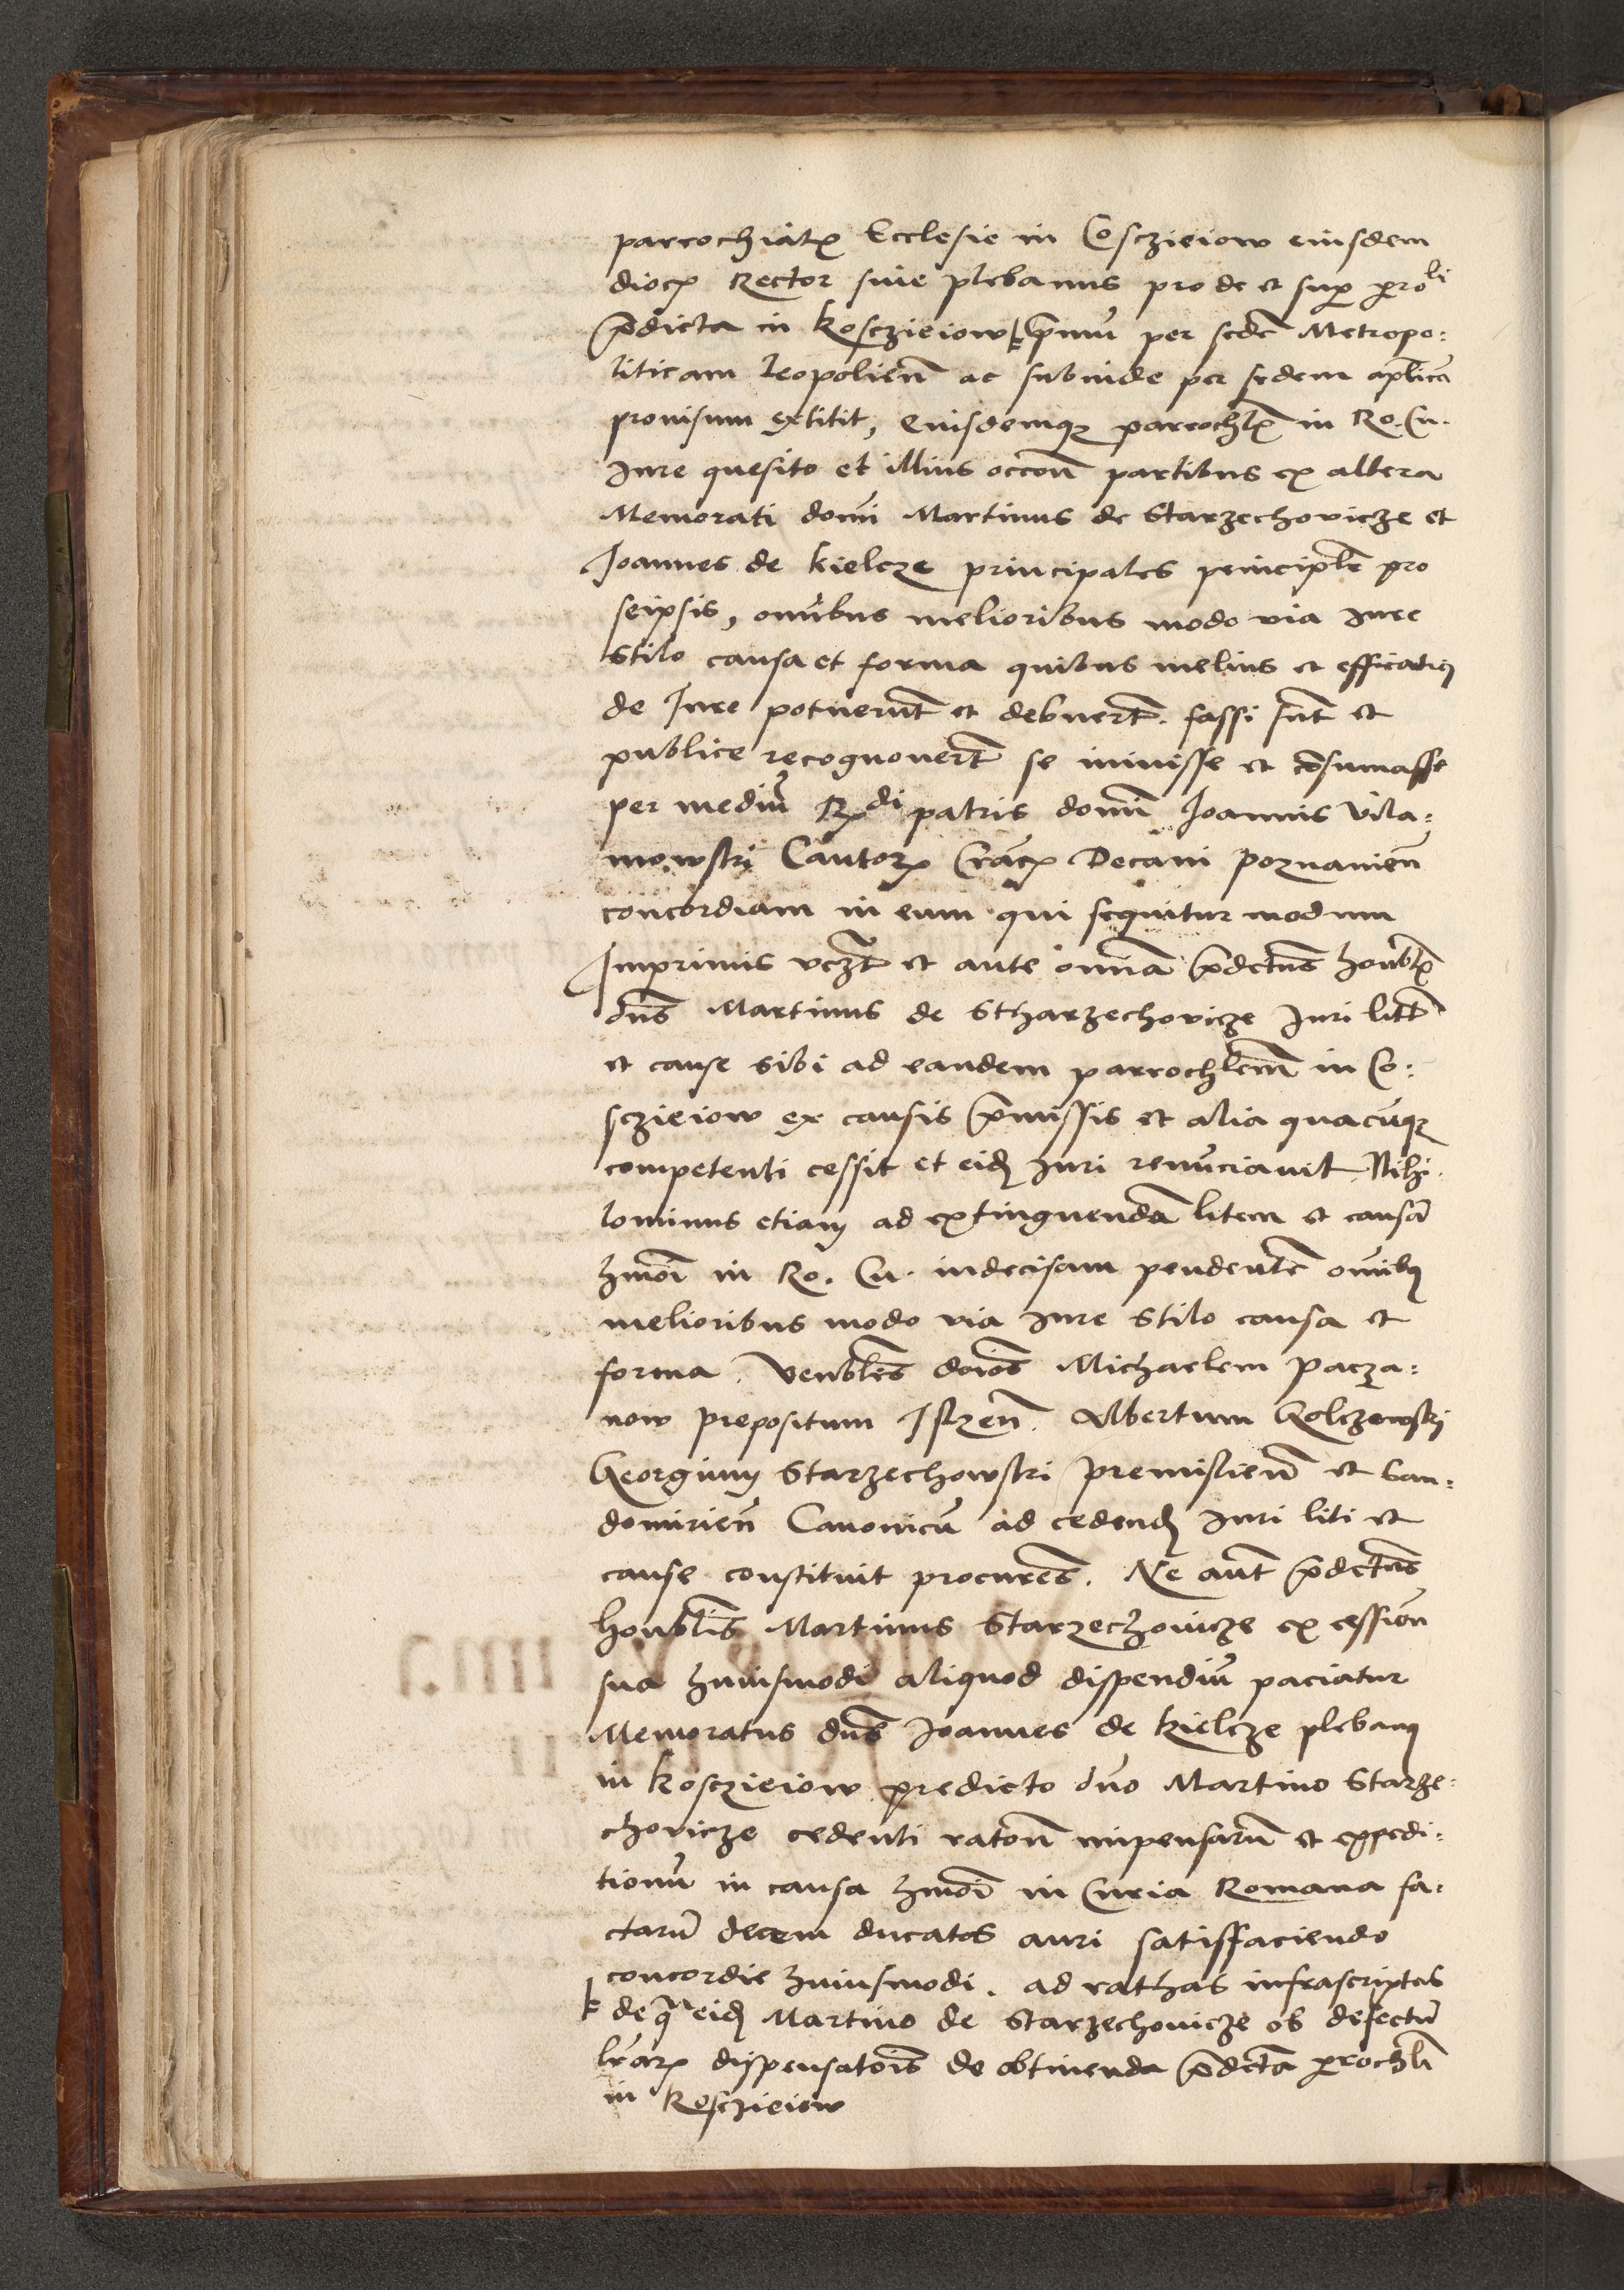 parrochialꝭ Ecclesie in Cosczieiow eiusdem
diocꝭ Rector siue plebanus pro de et sup p̱roli
p̄dicta in Kosczieiow p̄mū per sedē Metropo:
liticam Leopolien̄ ac subinde per sedem aplicā
prouisum extitit, eiusdemqꝫ parrochlꝭ in Ro. Cu.
Iure quesito et illius occoñ partibus ex altera
Memorati domi Martinus de Starzechovicze et
Joannes de Kielcze principales principlr̄ pro
seipsis, omībus melioribus modo via iure
stilo causa et forma quibus melius et efficatiꝰ
de Jure potuerūt et debuerūt. fassi sūt et
publice recognouerūt se iniuisse et cōsumasse
per mediū R̄di patris domī Joannis Vila:
mowski Cantorꝭ Cracꝭ Decani Poznanien̄
concordiam in eum qui sequitur modum
Imprimis vcꝫt et ante omnīa p̄dctus honblꝭ
dn̄s Martinus de Stharzechovicze Juri litt
et cause sibi ad eandem parrochlem̄ in Co:
sczieiow ex causis p̄missis et alia quacūqꝫ
competenti cessit et eidꝫ Iuri renūciauit Nihi:
lominus etiam ad extinguendā litem et causā
hmōi in Ro. Cu. indecisam pendentē omībꝰ
melioribus modo via iure stilo causa et
forma. Venblēs doīos Michaelem Pacza:
now prepositum Ilzen̄. Albertum Golczewski
Georgium Starzechowski Premislien̄ et San:
domirien̄ Canonicū ad cedendꝫ Iuri liti et
cause constituit procurēs. Ne aūt p̄dctus
honblis Martinus Starzechouicze ex cessiōn
sua huiusmodi aliquod dispendiū paciatur
Memoratus dn̄s Joannes de Kielcze plebanꝰ
in Kosczieiow predicto dn̄o Martino Starze:
chovicze cedenti ratōn̄ impensarū et expedi:
tionū in causa hmōi in Curia Romana fa:
ctarū decem ducatos auri satisfaciendo
concordie huiusmodi. ad rathas infrascriptas
de q̄ eidꝫ Martino de Starzechouicze ob defectū
lrārꝭ dispensatōis de obtinenda p̄dctā p̱rochli
in Kosczieiow